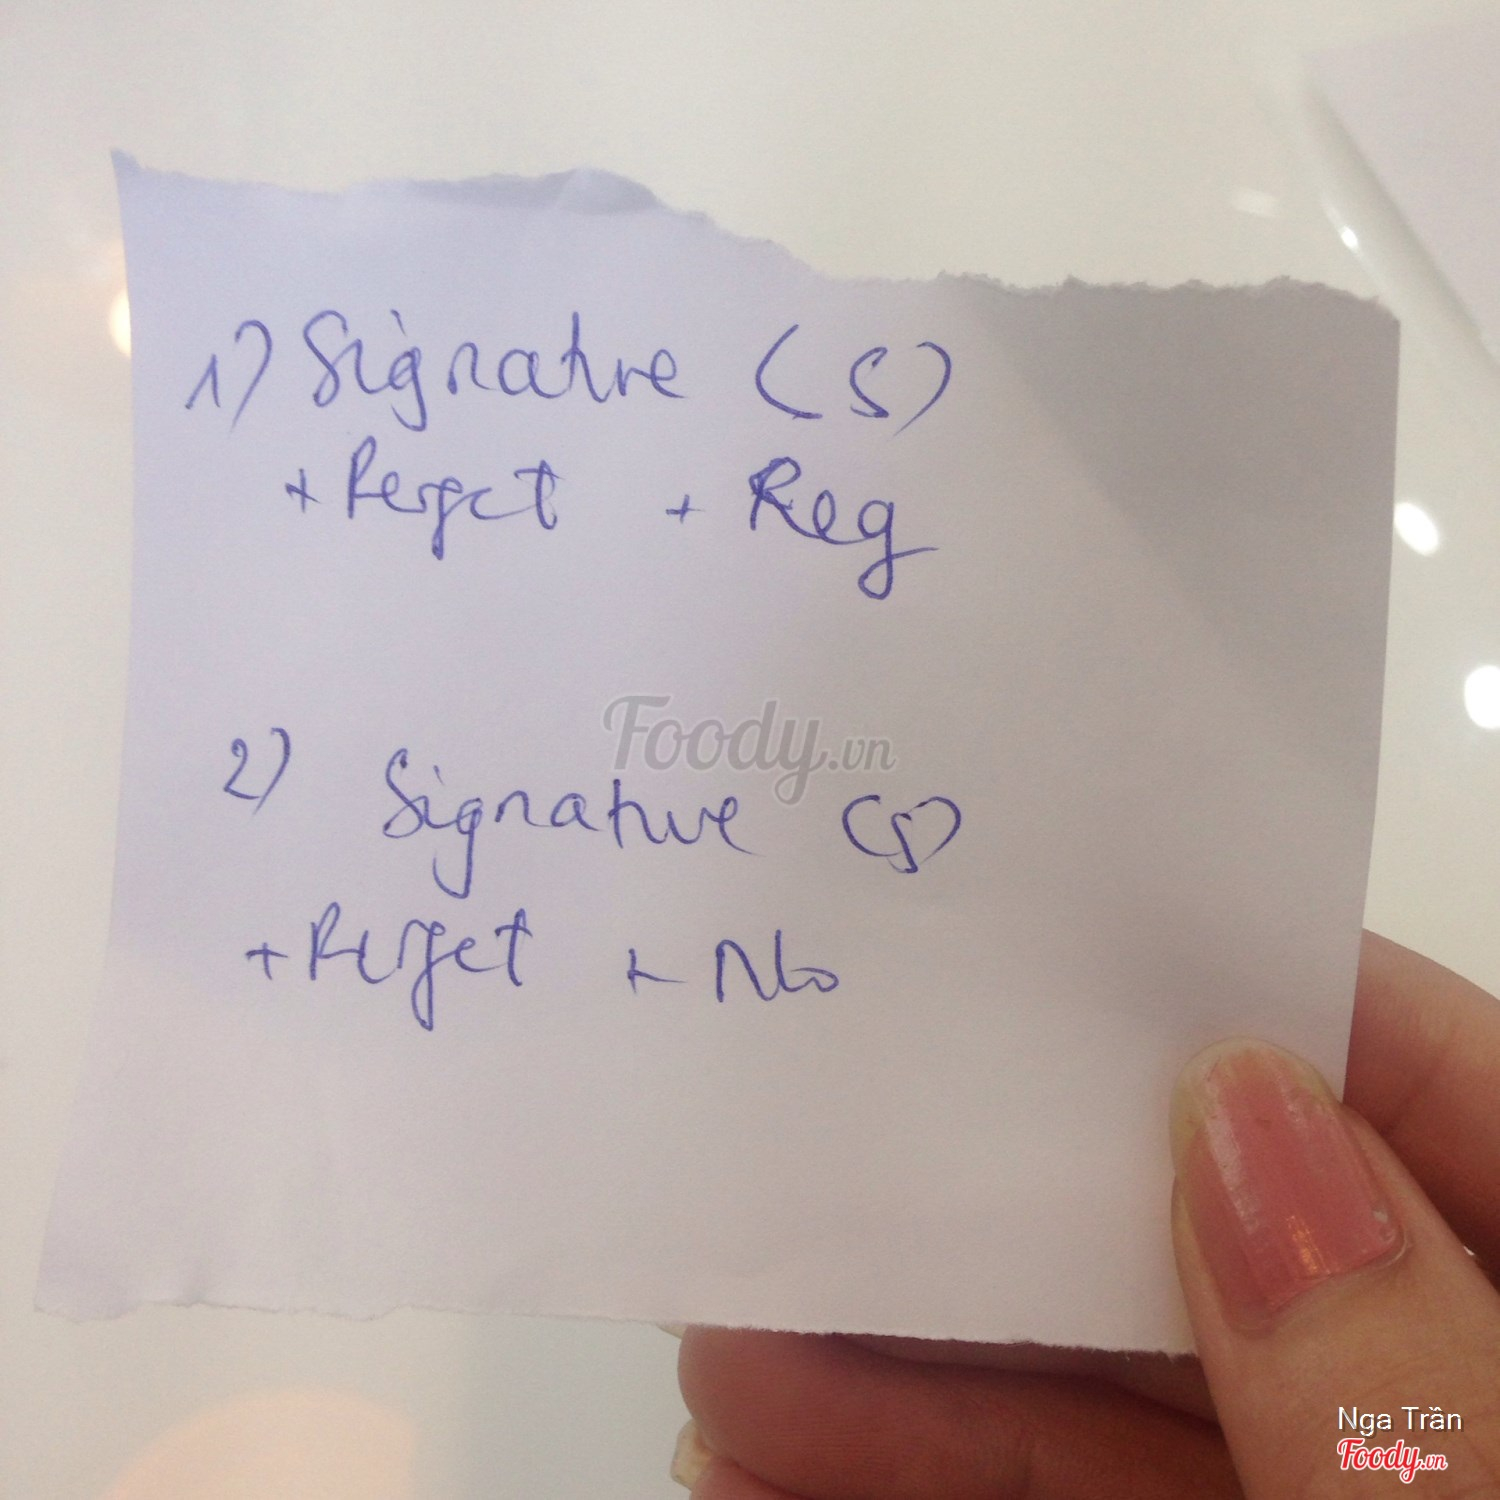 1) Signature (S)
+ Perfect + Reg
Foody.vn
2) Signature (S)
+ Perfect + No
Nga Trần
Foody.vn